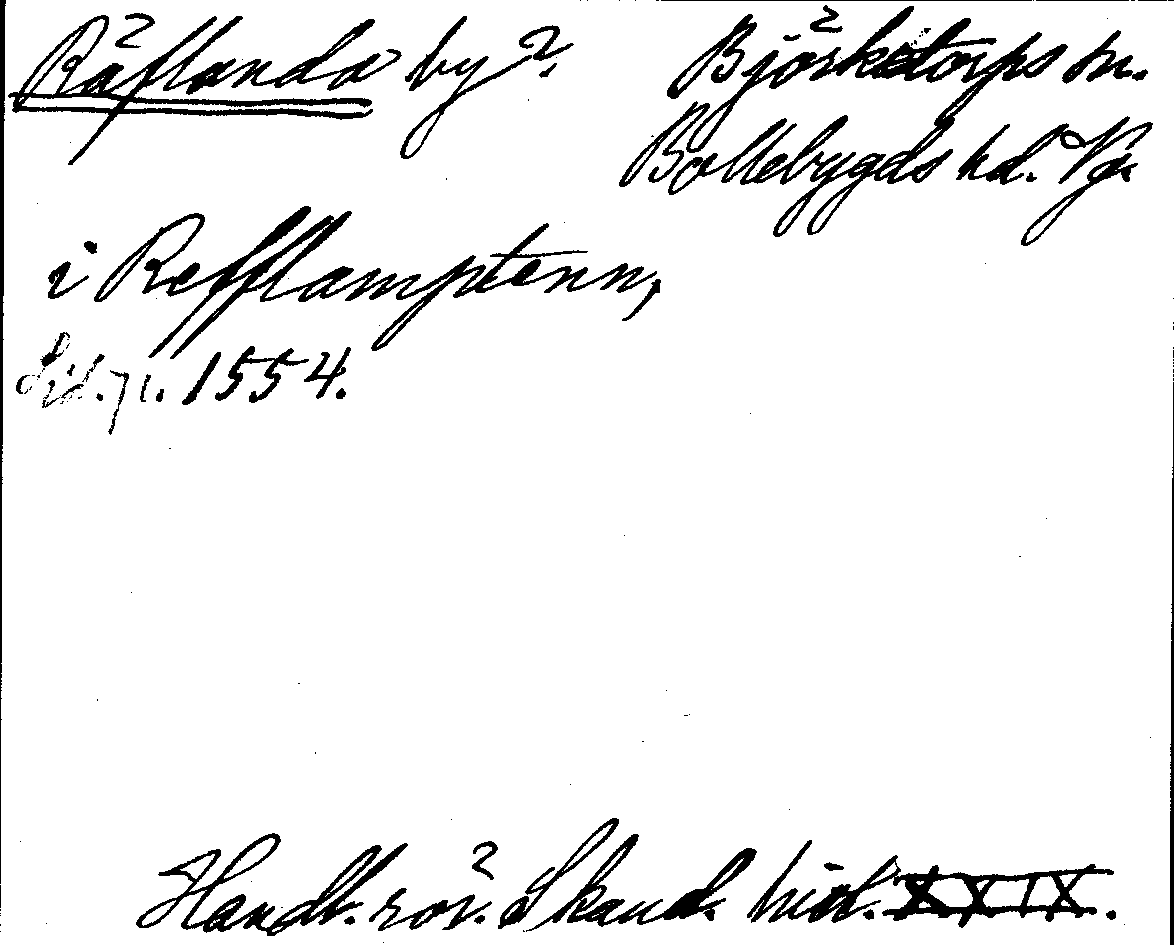 Räflanda by?
Björketorps sn.
Bollebygds hd. Vg.
i Refflamptenn,
Sid. 71. 1554.
Handl. rör. Skand. hist. XXIX.